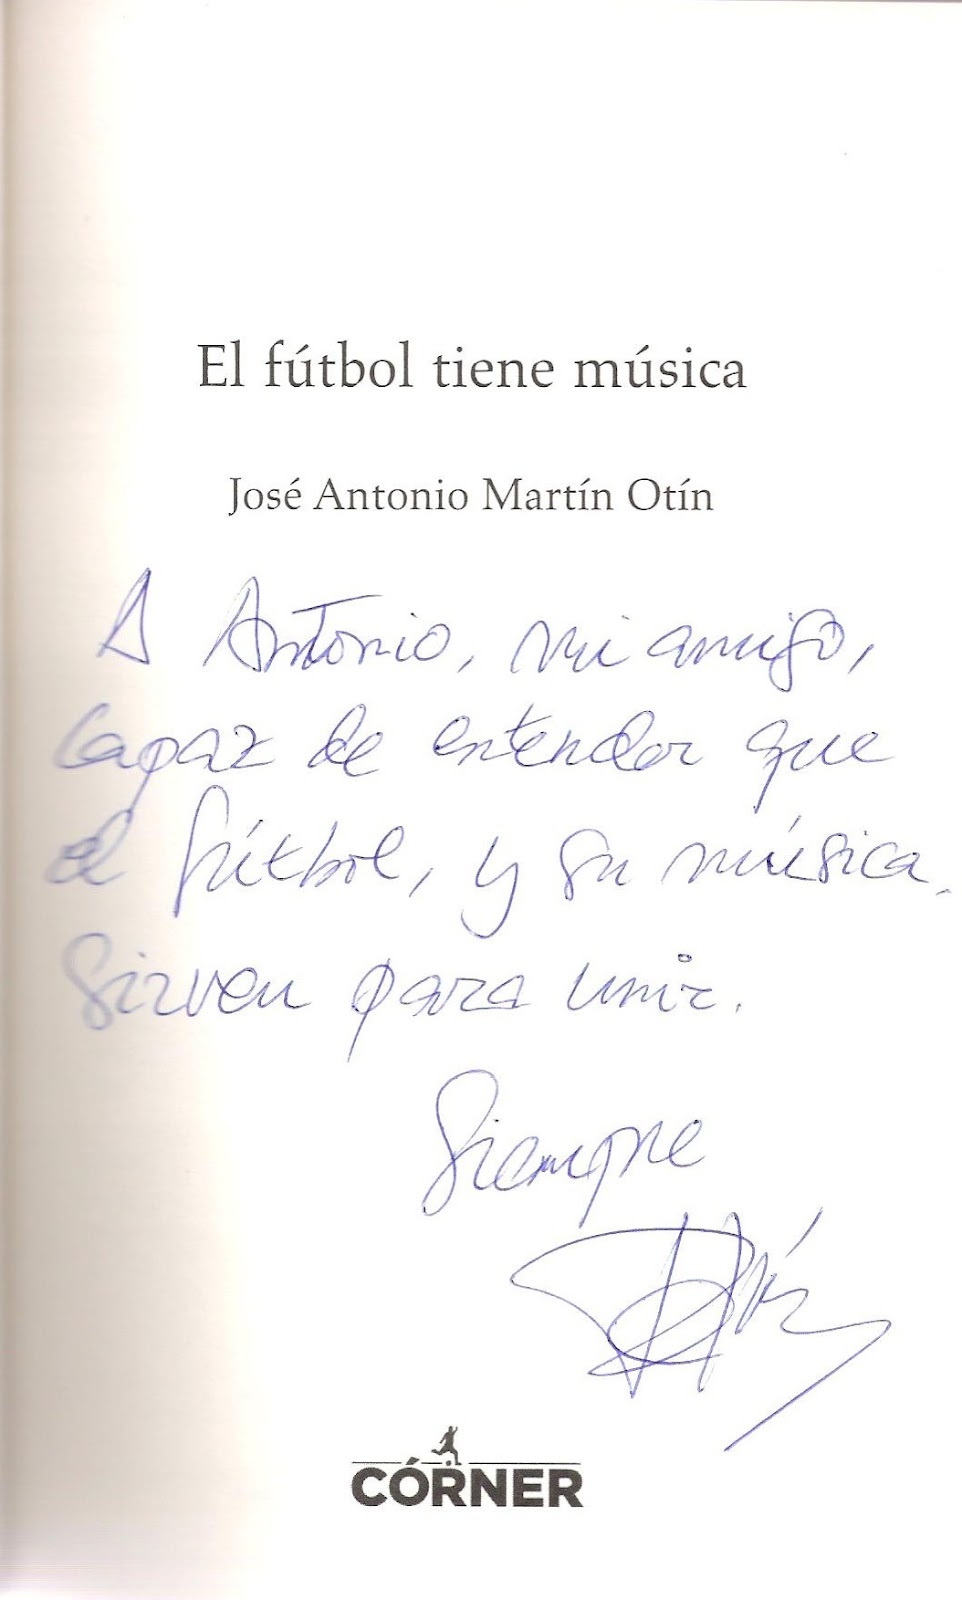 El fútbol tiene música
José Antonio Martín Otín
A Antonio, mi amigo,
capaz de entender que
el fútbol, y su música,
sirven para unir.
Siempre
CÓRNER